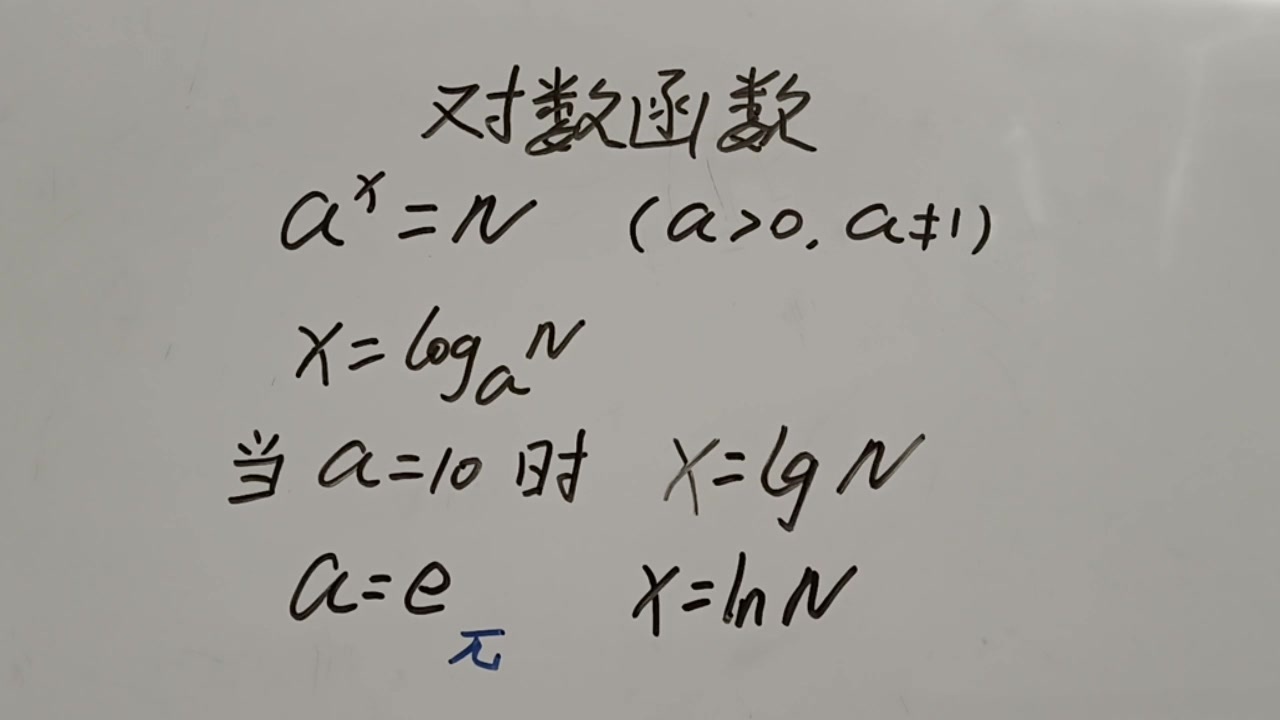 对数函数
aˣ=N (a>0, a≠1)
x=logₐN
当 a=10 时 x=lgN
a=e x=lnN
π